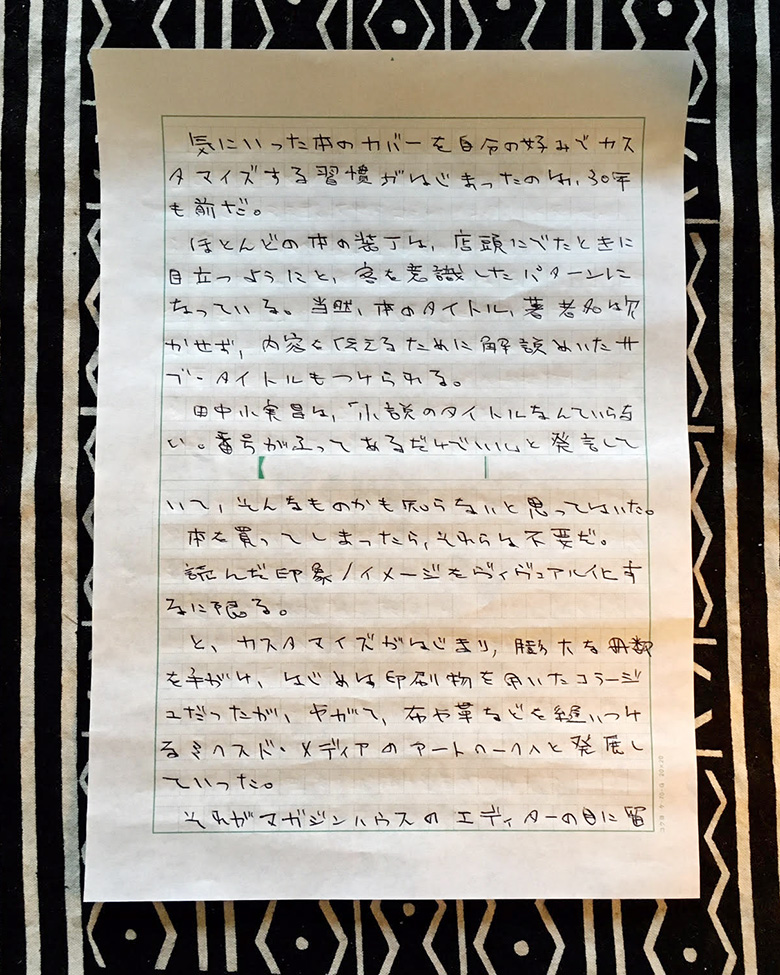 気にいった本のカバーを自分の好みでカス
タマイズする習慣がはじまったのは、30年
も前だ。
ほとんどの本の装丁は、店頭にでたときに
目立つようにと、客を意識したパターンに
なっている。当然、本のタイトル、著者名は欠
かせず、内容を伝えるために解説めいたサ
ブ・タイトルもつけられる。
田中小実昌は、「小説のタイトルなんていらな
い。番号がふってあるだけでいい」と発言して
いて、そんなものかも知らないと思ってはいた。
本を買ってしまったら、それらは不要だ。
読んだ印象/イメージをヴィヴュアル化す
るに限る。
と、カスタマイズがはじまり、膨大な冊数
を手がけ、はじめは印刷物を用いたコラージ
ュだったが、やがて、布や革などを縫いつけ
るミクスド・メディアのアートワークへと発展し
ていった。
それがマガジンハウスのエディターの目に留